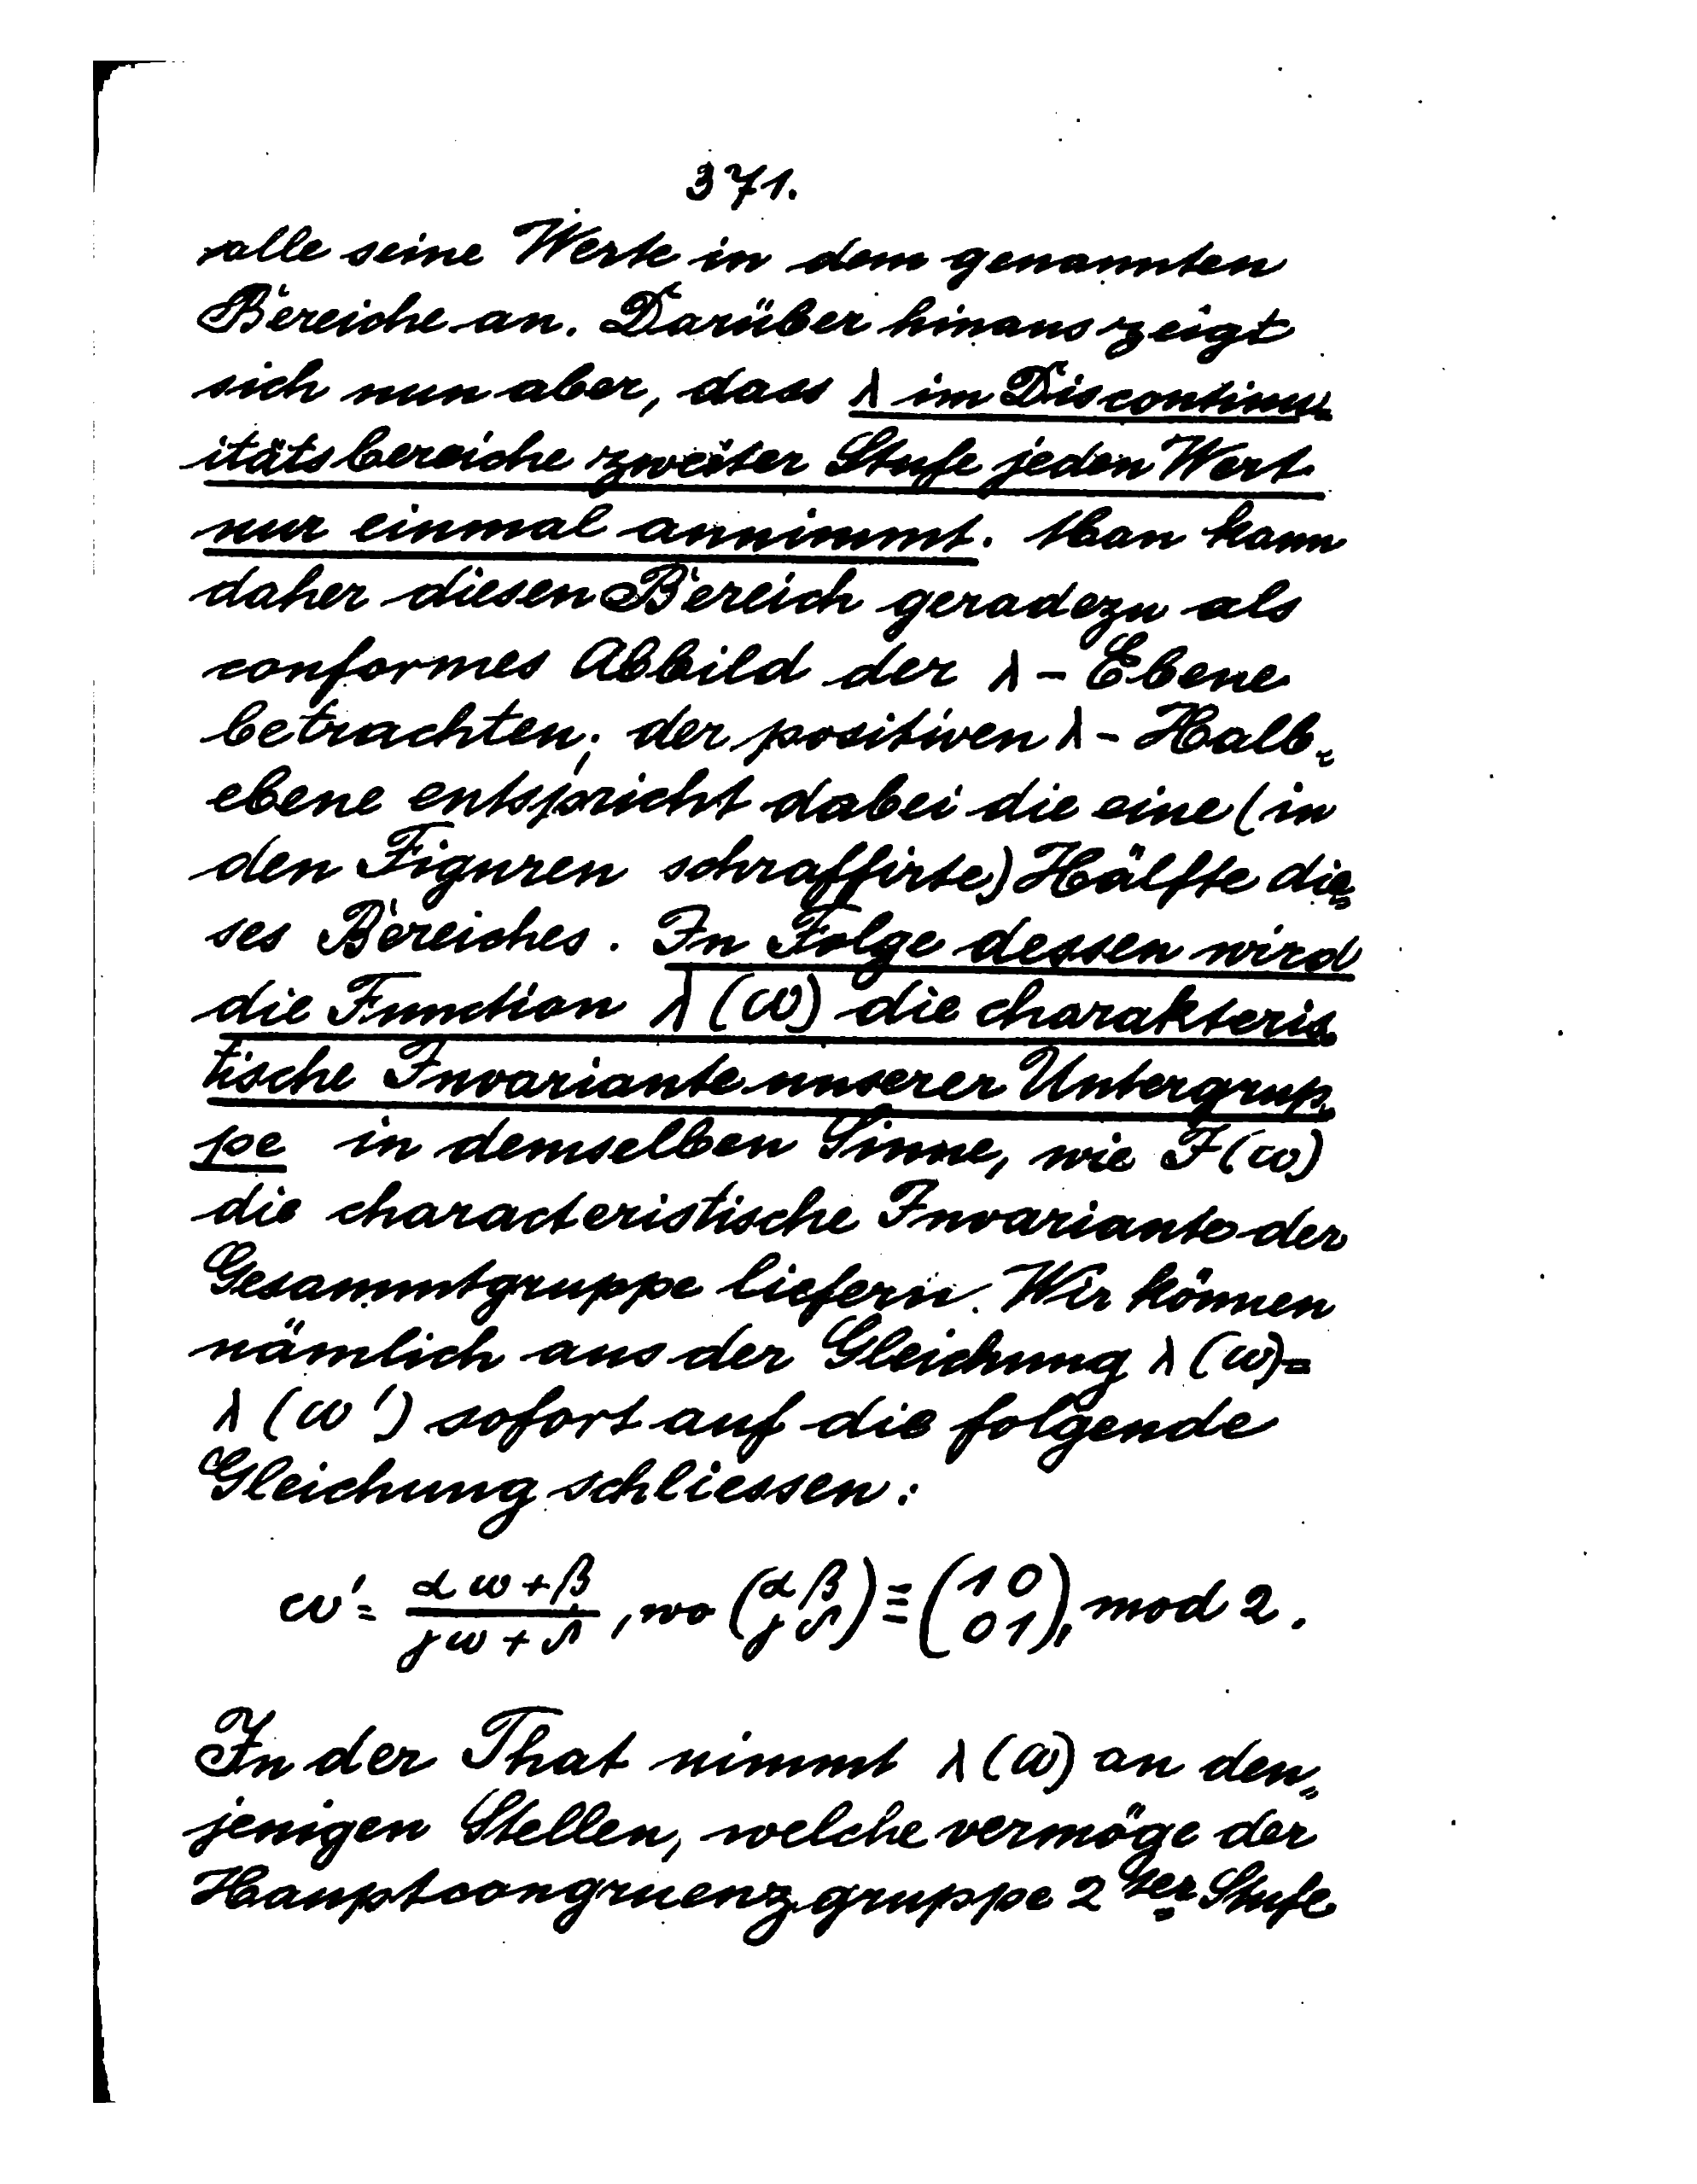 371.
alle seine Werte in dem genannten
Bereiche an. Darüber hinaus zeigt
sich nun aber, dass λ im Discontinu-
itätsbereiche zweiter Stufe jeden Wert
nur einmal annimmt. Man kann
daher diesen Bereich geradezu als
conformes Abbild der λ-Ebene
betrachten; der positiven λ-Halb-
ebene entspricht dabei die eine (in
den Figuren schraffirte) Hälfte die-
ses Bereiches. In Folge dessen wird
die Function λ(ω) die charakteris-
tische Invariante unserer Untergrup-
pe in demselben Sinne, wie J(ω)
die characteristische Invariante der
Gesammtgruppe liefern. Wir können
nämlich aus der Gleichung λ(ω)=
λ(ω') sofort auf die folgende
Gleichung schliessen:
ω' = (αω+β)/(γω+δ), wo (α β / γ δ) ≡ (1 0 / 0 1), mod 2.
In der That nimmt λ(ω) an den-
jenigen Stellen, welche vermöge der
Hauptcongruenzgruppe 2ter Stufe